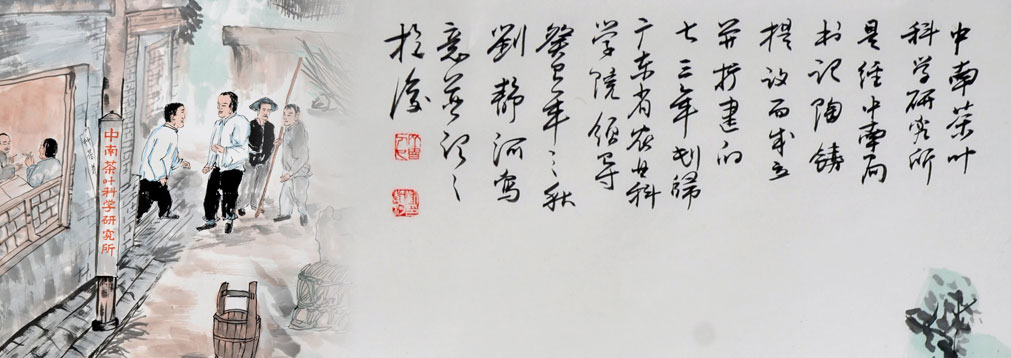 中南茶叶
科学研究所
是经中南局
书记陶铸
提议而成立
并扩建的
七三年划归
广东省农业科
学院领导
癸巳年之秋
劉静河写
意并记之
中南茶叶科学研究所